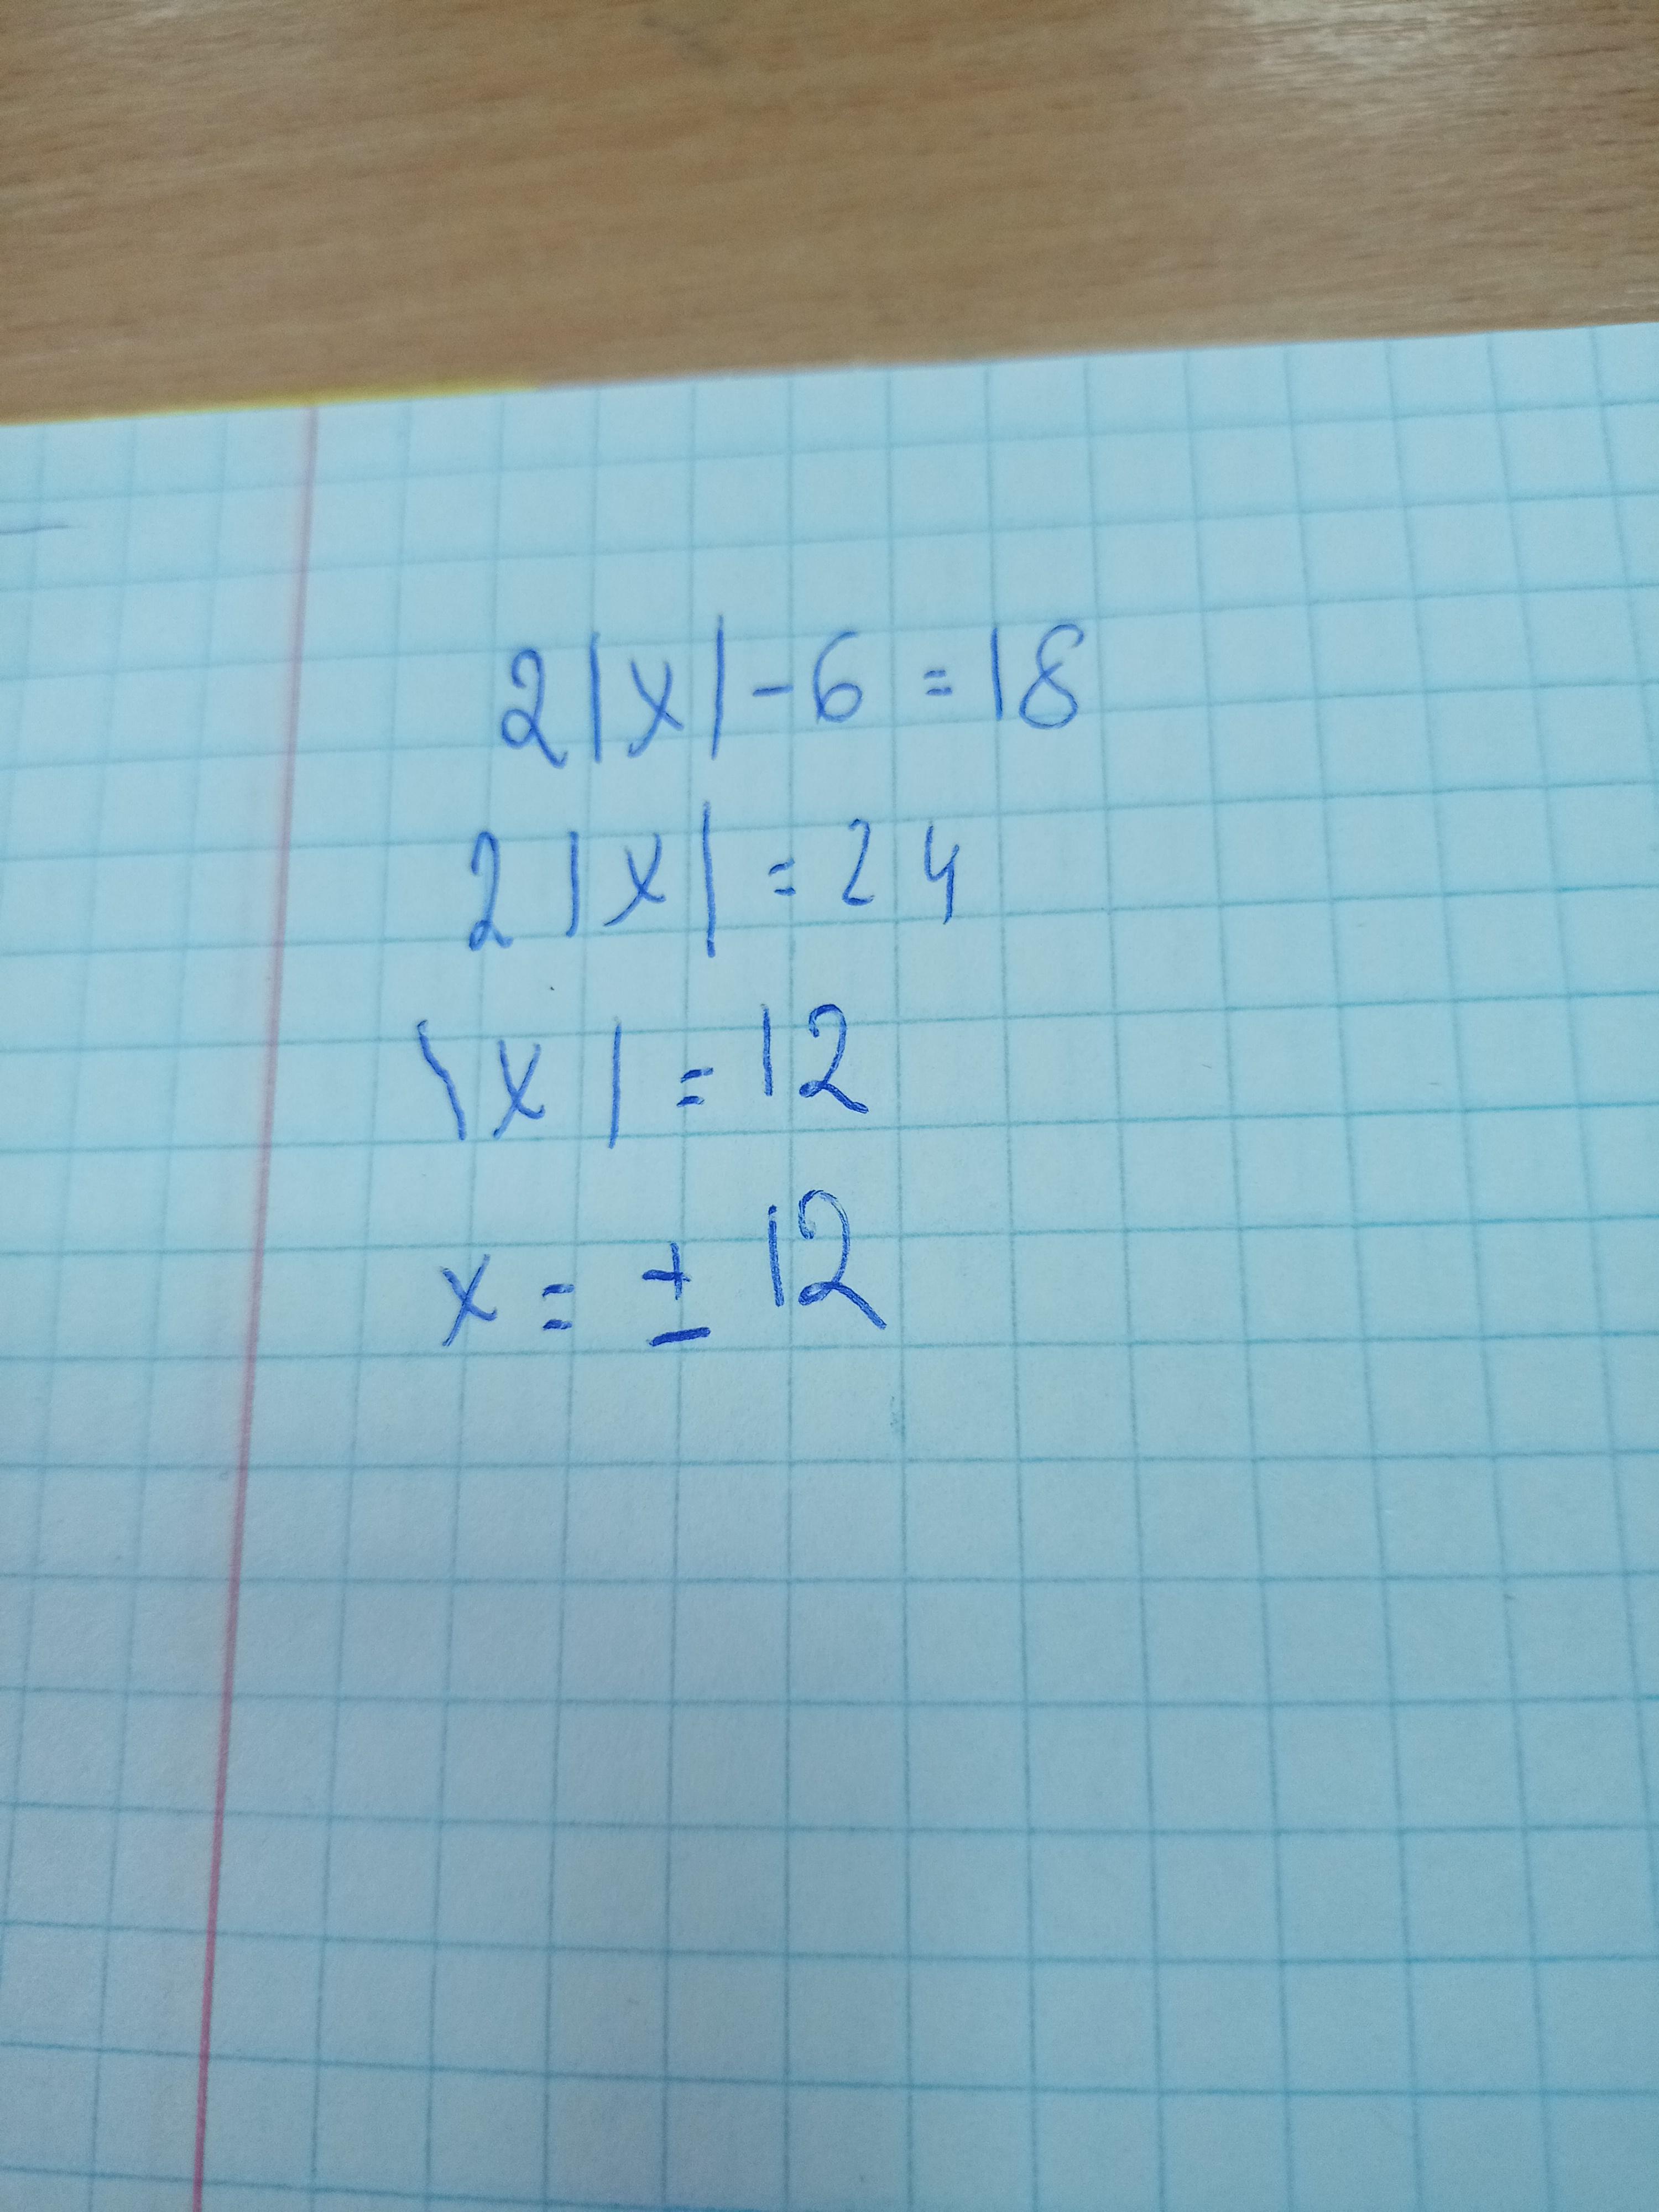 2|x|-6=18
2|x|=24
|x|=12
x=±12